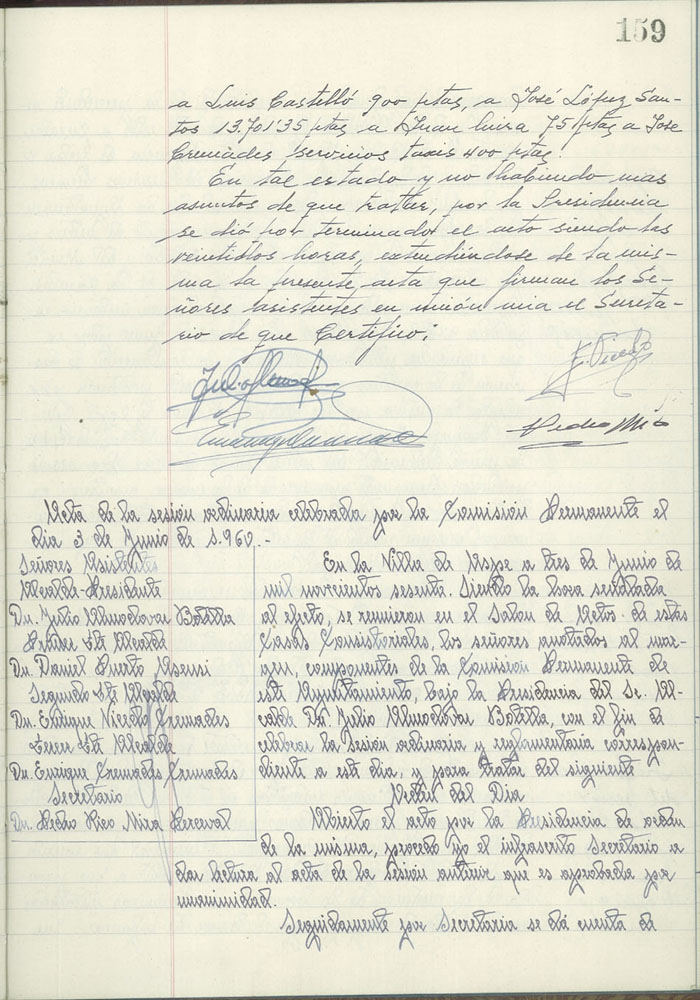 159
a Luis Castelló 900 ptas, a José López San-
tos 13.701'35 ptas, a Juan 75 ptas a José
Cremades servicios taxis 400 ptas.
En tal estado y no habiendo mas
asuntos de que tratar, por la Presidencia
se dió por terminado el acto siendo las
veintidos horas, extendiéndose de la mis-
ma la presente acta que firman los Se-
ñores asistentes en unión mia el Secreta-
rio de que Certifico:
Acta de la sesión ordinaria celebrada por la Comisión Permanente el
dia 3 de Junio de 1.960.-
Señores Asistentes
Alcalde-Presidente
Dn. Julio Almodovar Batlla
Primer Tte Alcalde
Dn. Daniel Puerto Asensi
Segundo Tte Alcalde
Dn. Enrique Vicedo Cremades
Tercer Tte Alcalde
Dn. Enrique Cremades Cremades
Secretario
Dn. Pedro Rico Mira Perceval
En la Villa de Aspe a tres de Junio de
mil novecientos sesenta. Siendo la hora señalada
al efecto, se reunieron en el Salon de Actos de estas
Casas Consistoriales, los señores anotados al mar-
gen, componentes de la Comision Permanente de
este Ayuntamiento, bajo la Presidencia del Sr. Al-
calde Dn. Julio Almodovar Batlla, con el fin de
celebrar la sesión ordinaria y reglamentaria correspon-
diente a este dia, y para tratar del siguiente
del Dia
Abierto el acto por la Presidencia de orden
de la misma, procedo yo el infrascrito Secretario a
dar lectura al acta de la sesion anterior que es aprobada por
unanimidad.
Seguidamente por Secretaria se dá cuenta de